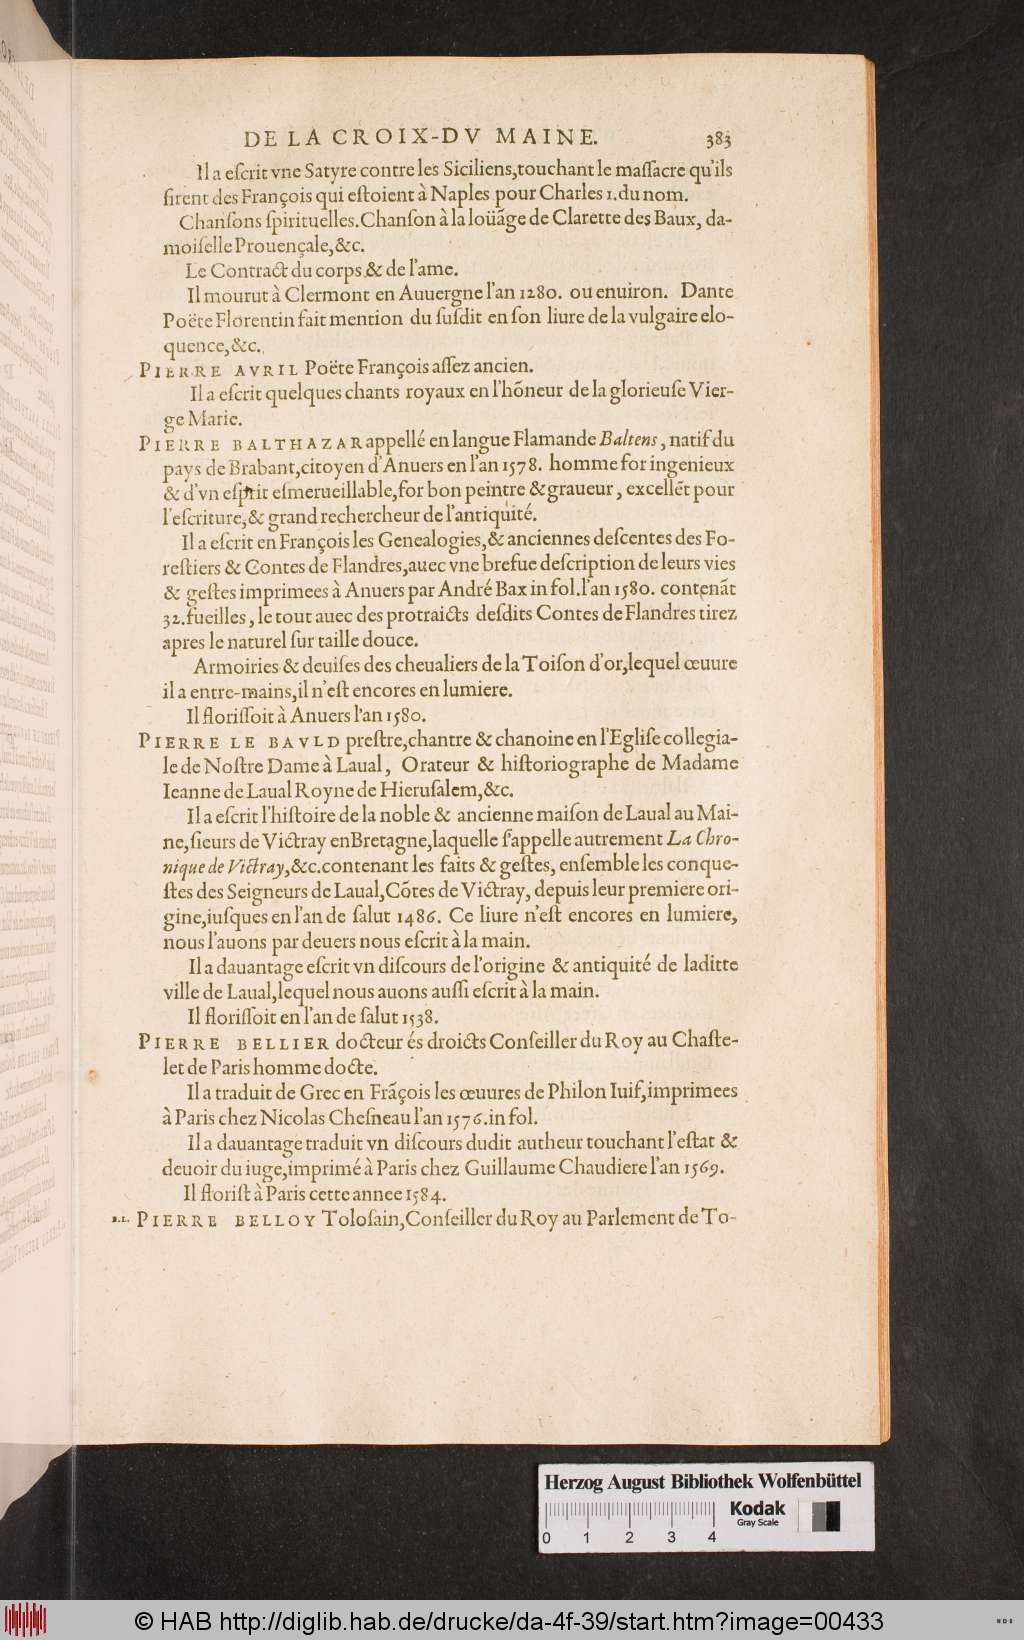 DE LA CROIX-DV MAINE. 383
Il a eſcrit vne Satyre contre les Siciliens, touchant le maſſacre qu'ils
firent des François qui eſtoient à Naples pour Charles 1. du nom.
Chanſons ſpirituelles. Chanſon à la loüãge de Clarette des Baux, da-
moiſelle Prouençale, &c.
Le Contract du corps & de l'ame.
Il mourut à Clermont en Auuergne l'an 1280. ou enuiron. Dante
Poëte Florentin fait mention du ſuſdit en ſon liure de la vulgaire elo-
quence, &c.
PIERRE AVRIL Poëte François aſſez ancien.
Il a eſcrit quelques chants royaux en l'hõneur de la glorieuſe Vier-
ge Marie.
PIERRE BALTHAZAR appellé en langue Flamande Baltens, natif du
pays de Brabant, citoyen d'Anuers en l'an 1578. homme for ingenieux
& d'vn eſprit eſmerueillable, for bon peintre & graueur, excellẽt pour
l'eſcriture, & grand rechercheur de l'antiquité.
Il a eſcrit en François les Genealogies, & anciennes deſcentes des Fo-
reſtiers & Contes de Flandres, auec vne brefue deſcription de leurs vies
& geſtes imprimees à Anuers par André Bax in fol. l'an 1580. contenãt
32. fueilles, le tout auec des protraicts deſdits Contes de Flandres tirez
apres le naturel ſur taille douce.
Armoiries & deuiſes des cheualiers de la Toiſon d'or, lequel œuure
il a entre-mains, il n'eſt encores en lumiere.
Il floriſſoit à Anuers l'an 1580.
PIERRE LE BAVLD preſtre, chantre & chanoine en l'Egliſe collegia-
le de Noſtre Dame à Laual, Orateur & hiſtoriographe de Madame
Ieanne de Laual Royne de Hieruſalem, &c.
Il a eſcrit l'hiſtoire de la noble & ancienne maiſon de Laual au Mai-
ne, ſieurs de Victray en Bretagne, laquelle s'appelle autrement La Chro-
nique de Victray, &c. contenant les faits & geſtes, enſemble les conque-
ſtes des Seigneurs de Laual, Cõtes de Victray, depuis leur premiere ori-
gine, iuſques en l'an de ſalut 1486. Ce liure n'eſt encores en lumiere,
nous l'auons par deuers nous eſcrit à la main.
Il a dauantage eſcrit vn diſcours de l'origine & antiquité de laditte
ville de Laual, lequel nous auons auſſi eſcrit à la main.
Il floriſſoit en l'an de ſalut 1538.
PIERRE BELLIER docteur és droicts Conſeiller du Roy au Chaſte-
let de Paris homme docte.
Il a traduit de Grec en Frãçois les œuures de Philon Iuif, imprimees
à Paris chez Nicolas Cheſneau l'an 1576. in fol.
Il a dauantage traduit vn diſcours dudit autheur touchant l'eſtat &
deuoir du iuge, imprimé à Paris chez Guillaume Chaudiere l'an 1569.
Il floriſt à Paris cette annee 1584.
B.L. PIERRE BELLOY Toloſain, Conſeiller du Roy au Parlement de To-
Herzog August Bibliothek Wolfenbüttel
Kodak
Gray Scale
0 1 2 3 4
© HAB http://diglib.hab.de/drucke/da-4f-39/start.htm?image=00433